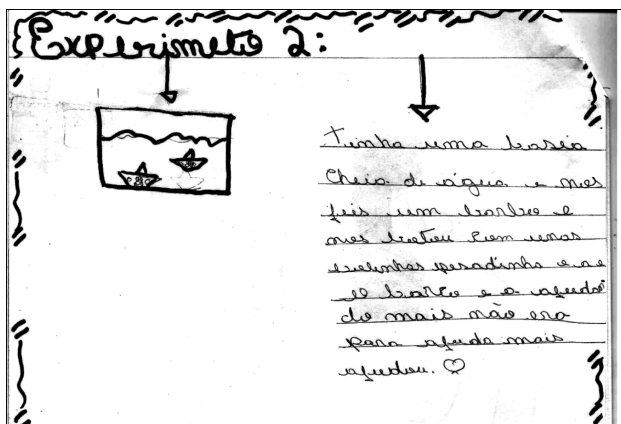 Experimeto 2:
Tinha uma basia
Cheia de água e nos
feis um barbco e
nos botou com umas
bolinhas pesadinha e a e
o barco e o afundo
do mais não era
para afunda mais
afundou.